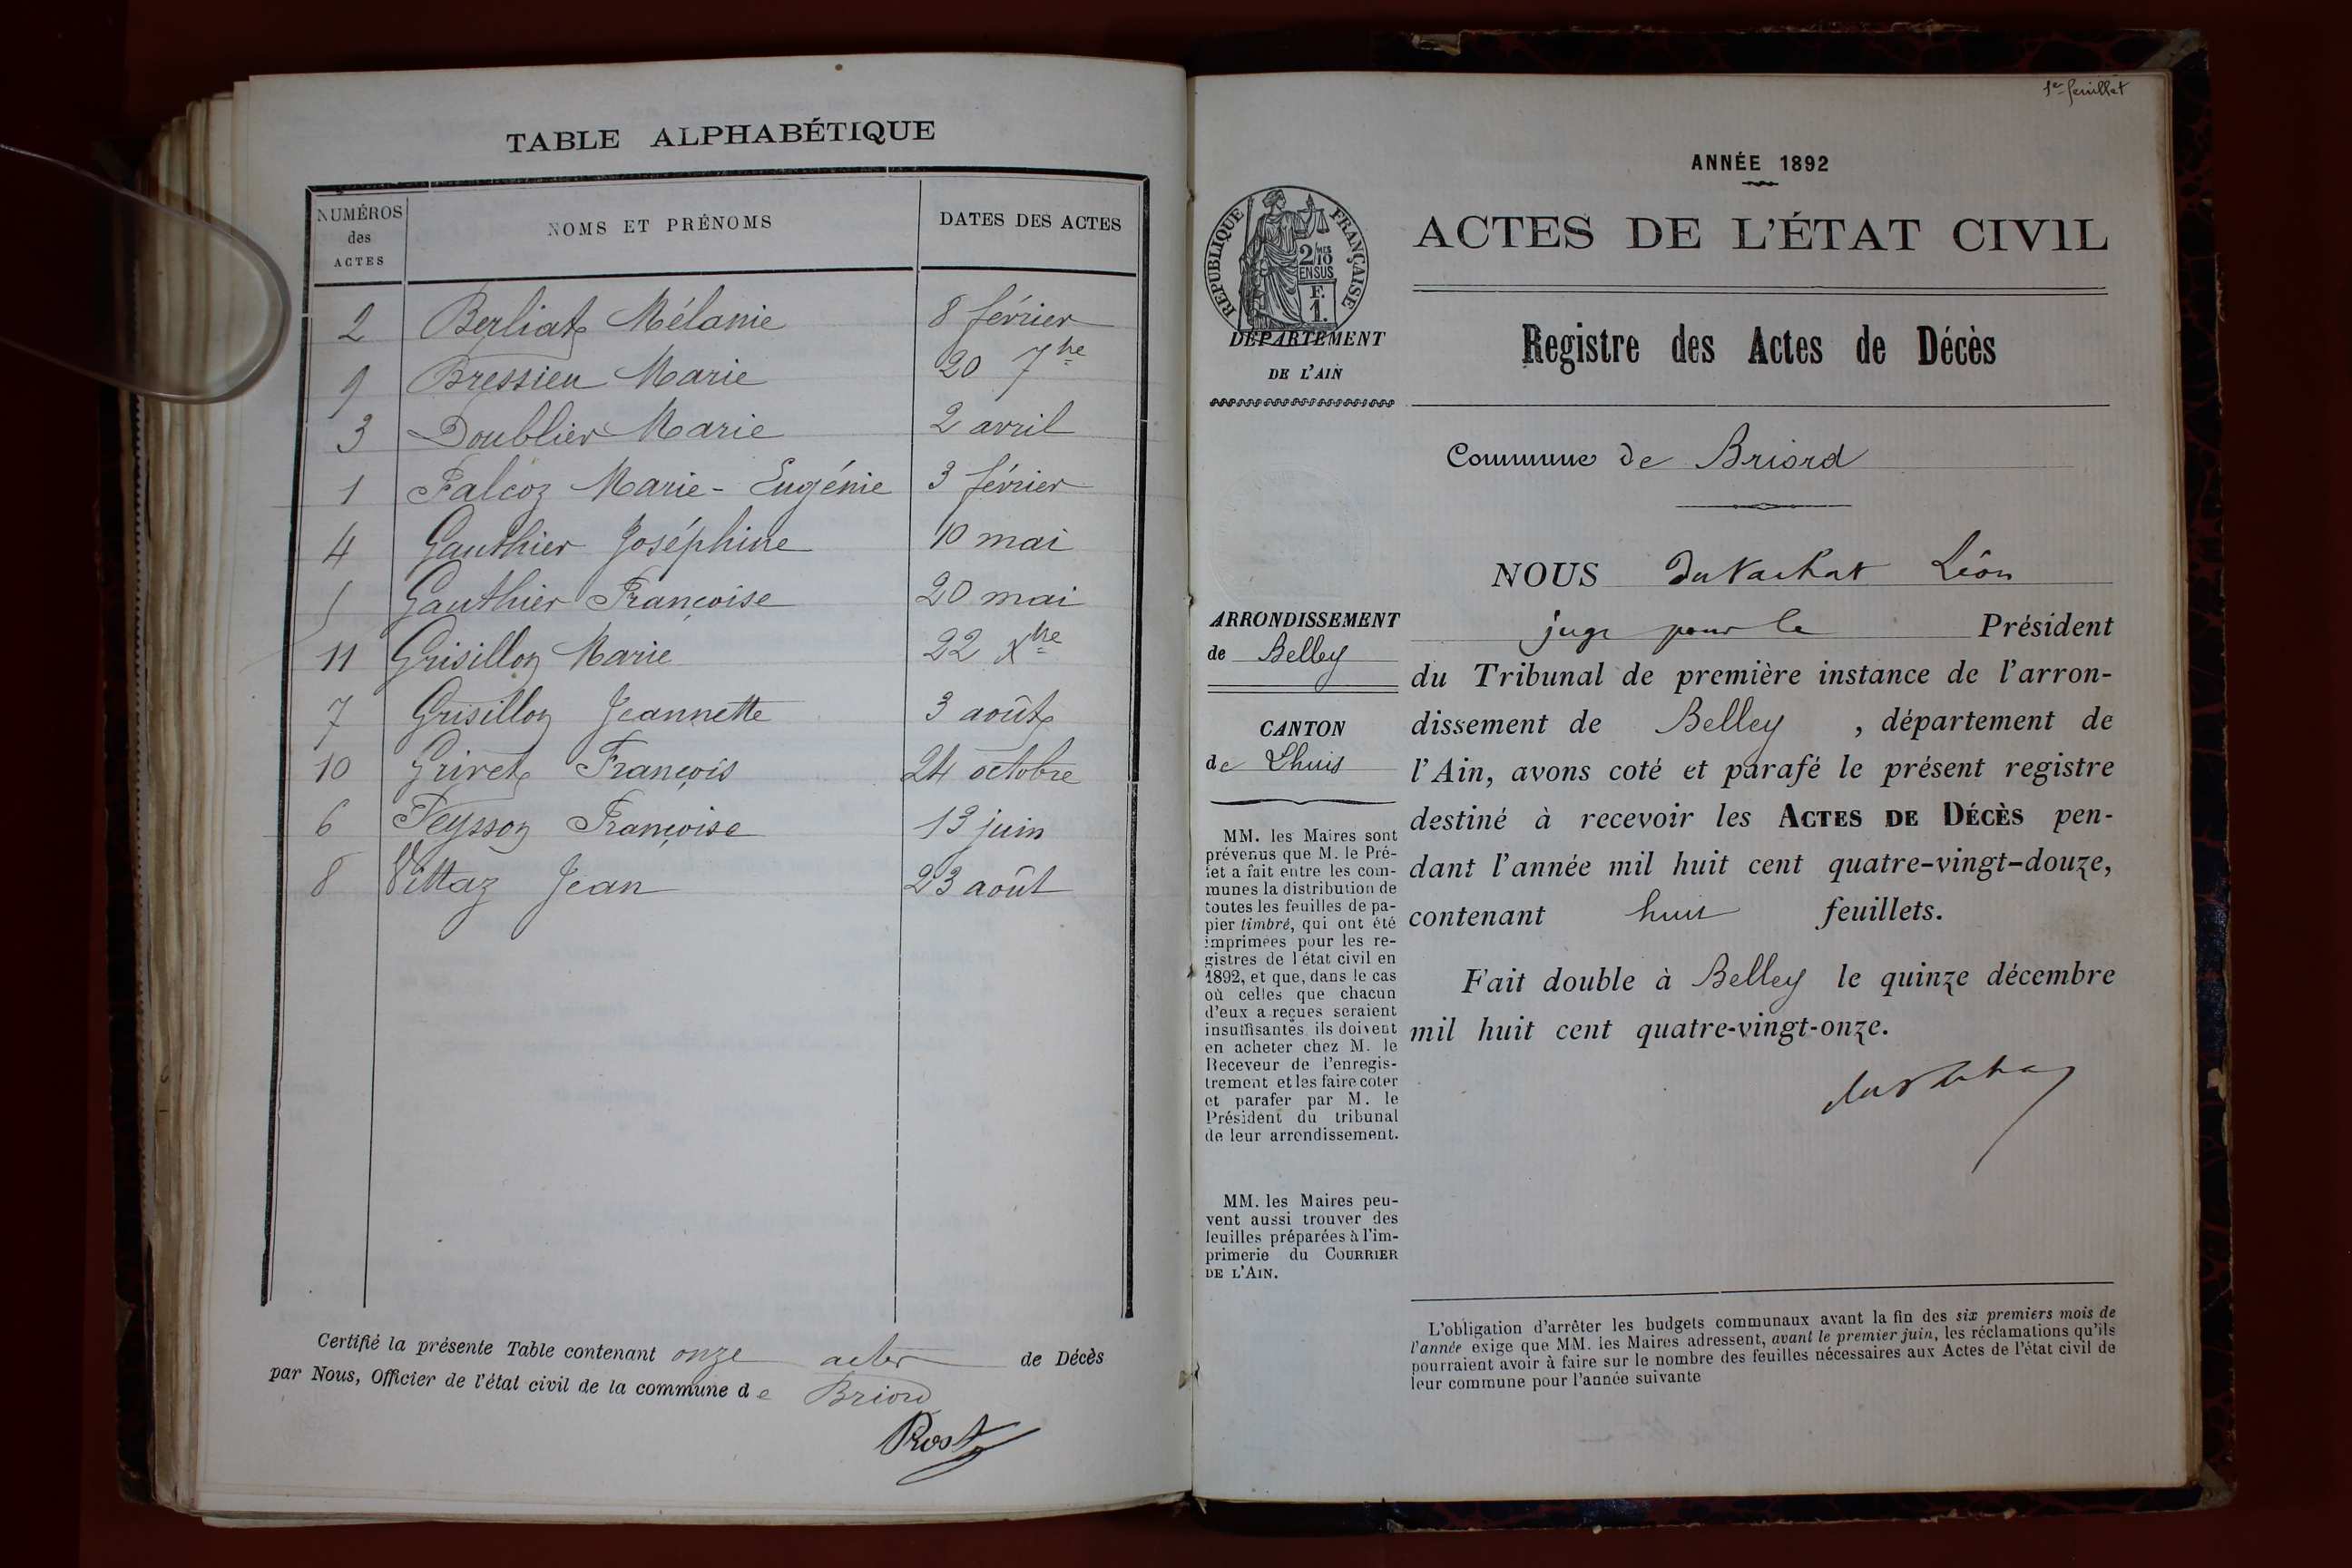 TABLE ALPHABÉTIQUE
NUMÉROS des ACTES | NOMS ET PRÉNOMS | DATES DES ACTES
2 Berliat Mélanie 8 février
9 Bressieu Marie 20 7bre
3 Doublier Marie 2 avril
1 Falcoz Marie-Eugénie 3 février
4 Gauthier Joséphine 10 mai
5 Gauthier Françoise 20 mai
11 Grisillon Marie 22 Xbre
7 Grisillon Jeannette 3 août
10 Grivet François 24 octobre
6 Peysson Françoise 13 juin
8 Vittaz Jean 23 août
Certifié la présente Table contenant onze actes de Décès
par Nous, Officier de l'état civil de la commune de Briord
Rost
1er feuillet
ANNÉE 1892
ACTES DE L'ÉTAT CIVIL
RÉPUBLIQUE FRANÇAISE
2/10 MES
EN SUS
F.
1.
DÉPARTEMENT
DE L'AIN
Registre des Actes de Décès
Commune de Briord
NOUS Léon
juge pour le Président
du Tribunal de première instance de l'arron-
dissement de Belley , département de
l'Ain, avons coté et parafé le présent registre
destiné à recevoir les ACTES DE DÉCÈS pen-
dant l'année mil huit cent quatre-vingt-douze,
contenant huit feuillets.
Fait double à Belley le quinze décembre
mil huit cent quatre-vingt-onze.
ARRONDISSEMENT
de Belley
CANTON
de Lhuis
MM. les Maires sont
prévenus que M. le Pré-
fet a fait entre les com-
munes la distribution de
toutes les feuilles de pa-
pier timbré, qui ont été
imprimées pour les re-
gistres de l'état civil en
1892, et que, dans le cas
où celles que chacun
d'eux a reçues seraient
insuffisantes ils doivent
en acheter chez M. le
Receveur de l'enregis-
trement et les faire coter
et parafer par M. le
Président du tribunal
de leur arrondissement.
MM. les Maires peu-
vent aussi trouver des
feuilles préparées à l'im-
primerie du COURRIER
DE L'AIN.
L'obligation d'arrêter les budgets communaux avant la fin des six premiers mois de
l'année exige que MM. les Maires adressent, avant le premier juin, les réclamations qu'ils
pourraient avoir à faire sur le nombre des feuilles nécessaires aux Actes de l'état civil de
leur commune pour l'année suivante